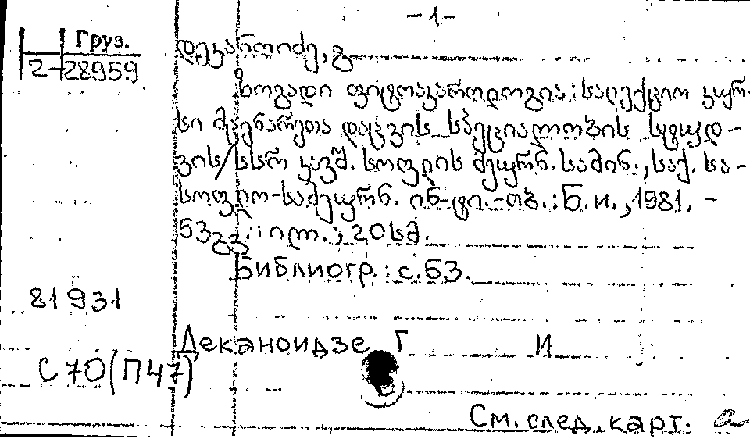 -1-
Груз.
2-28959
დეკანოიძე, გ.
ზოგადი ფიტოპათოლოგია: სალექციო კურ-
სი მცენარეთა დაცვის სპეციალობის სტუდ-
ვის/სსრ კავშ. სოფლის მეურნ. სამინ., საქ. სა-
სოფლო-სამეურნ. ინ-ტი.-თბ.: Б.и., 1981. -
53 გვ.: ილ.; 20 სმ.
Библиогр.: с.53.
81931
Деканоидзе Г И
С70(П47)
См. след. карт.